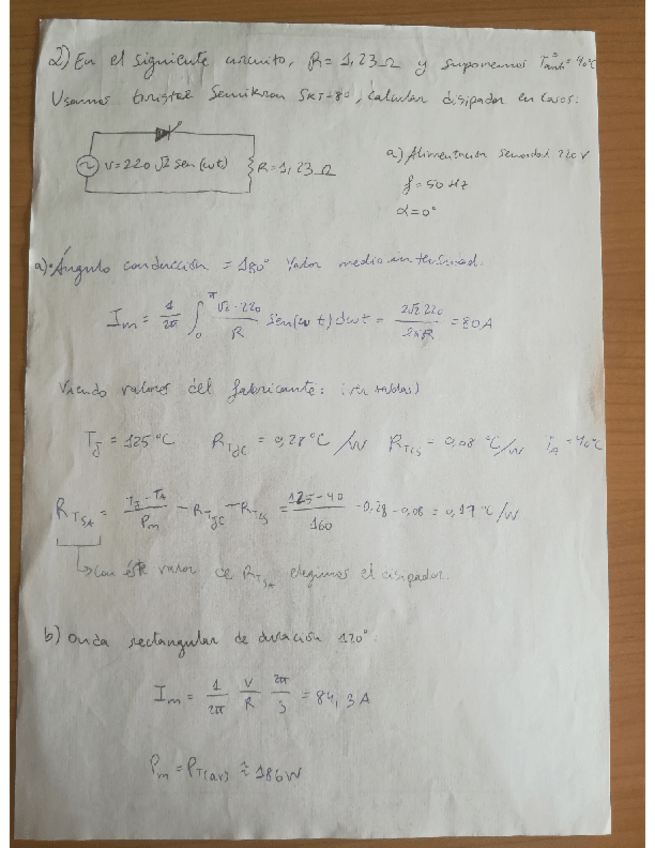 2) En el siguiente circuito, R = 1,23 Ω y suponemos Tamb = 40°C
Usamos tiristor Semikron SKT-80, calcular disipador en casos:
V = 220 √2 sen(ωt)
R = 1,23 Ω
a) Alimentación senoidal 220 V
f = 50 Hz
α = 0°
a) Ángulo conducción = 180° Valor medio intensidad.
Im = 1/2π ∫₀^π √2·220/R sen(ωt) dωt = 2√2 220/2πR = 80 A
Viendo valores del fabricante: (ver tablas)
TJ = 125°C RTJC = 0,28 °C/W RTCS = 0,08 °C/W TA = 40°C
RTSA = TJ - TA/Pm - RTJC - RTCS = 125 - 40/160 - 0,28 - 0,08 = 0,17 °C/W
con éste valor de RTSA elegimos el disipador.
b) Onda rectangular de duración 120°:
Im = 1/2π V/R 2π/3 = 84,3 A
Pm = PT(av) ≈ 186 W